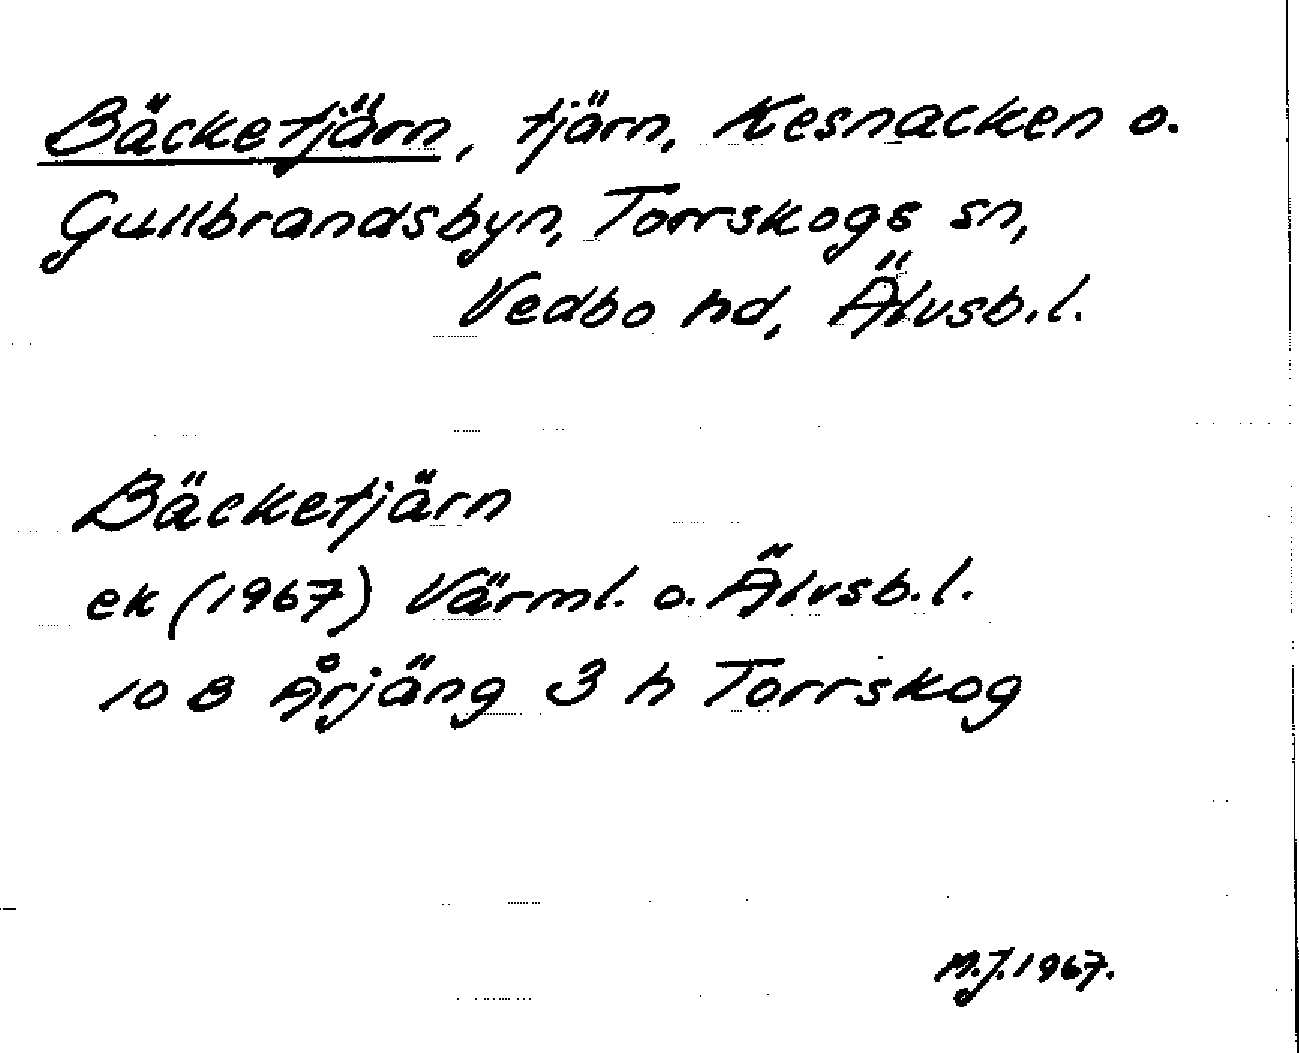 Bäcketjärn, tjärn, Kesnacken o.
Gullbrandsbyn, Torrskogs sn,
Vedbo hd, Älvsb.l.
Bäcketjärn
ek (1967) Värml. o. Älvsb.l.
10 B Årjäng 3 h Torrskog
M.J. 1967.